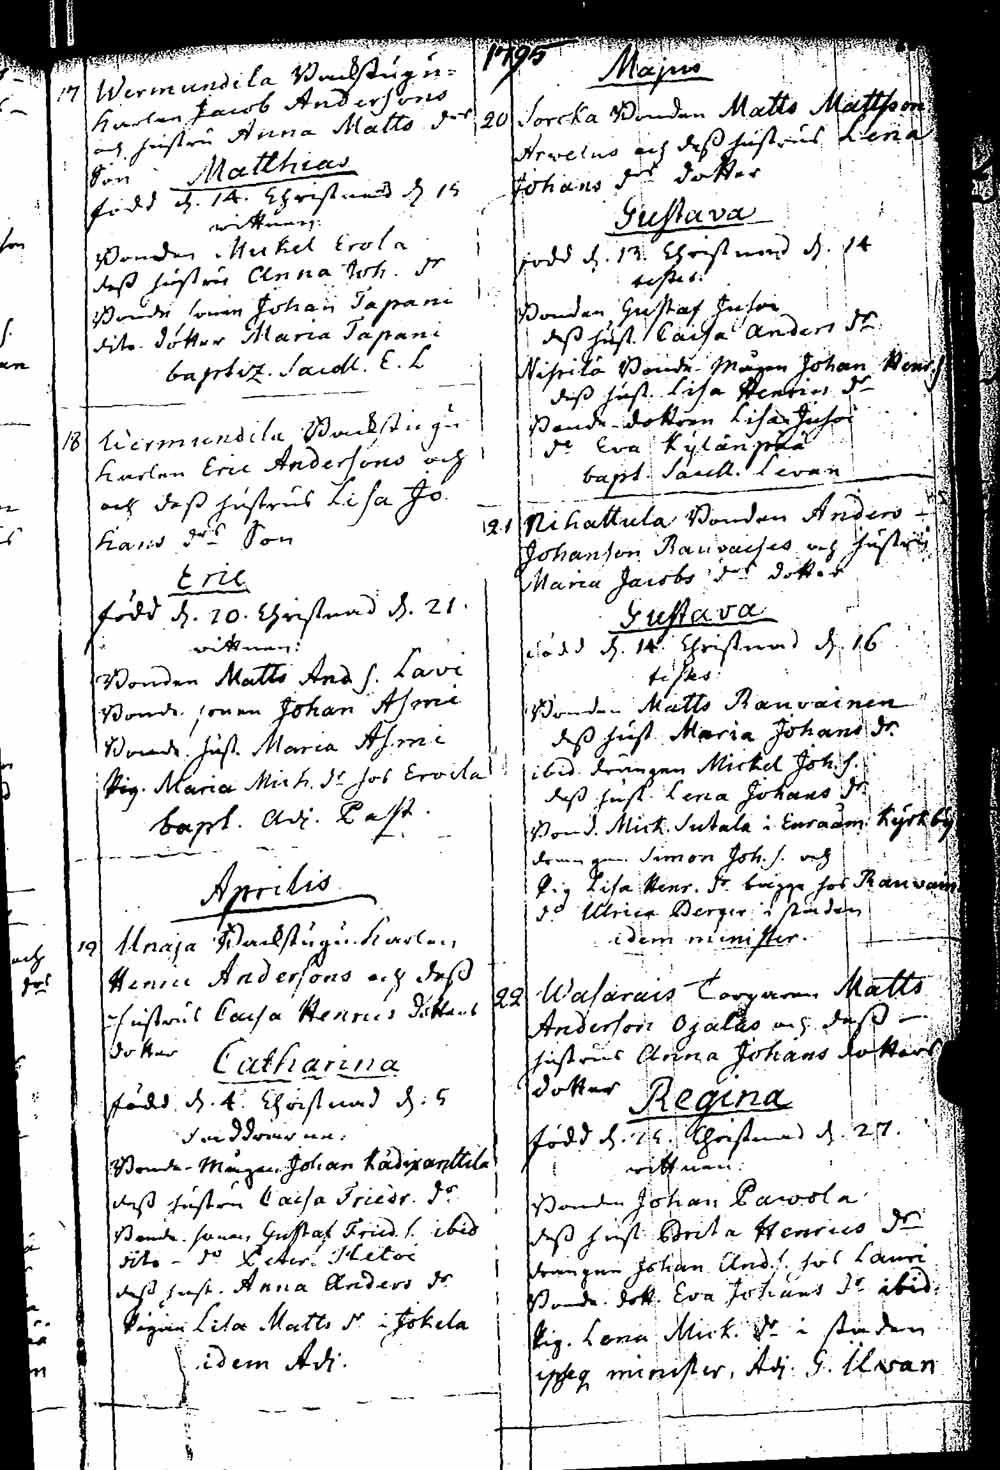 1795
17 Wermundila Backstugu=
karlen Jacob Andersons
och hustru Anna Matts drs
Son Matthias
född d. 14. Christnad d. 15
vittnen:
Bonden Mickel Erola
dess hustru Anna Joh. dr
Bonde sonen Johan Tapani
dito dotter Maria Tapani
baptiz. Sacell. E. L
18 Wermundila Backstugu
karlen Eric Andersons och
och dess hustrus Lisa Jo
hans drs Son
Eric
född d. 20. Christnad d. 21.
vittnen:
Bonden Matts And. s. Lavi
Bonde sonen Johan Asmi
Bonde hust. Maria Asmi
Pig. Maria Mich. dr hos Ervola
bapt. Adj. Past.
Aprilis
19 Unaja Backstugu karlen
Henric Andersons och dess
hustrus Caisa Henrics dotters
dotter Catharina
född d. 4. Christnad d. 5
Bonde-Mågen Johan Kädixanttila
dess hustru Caisa Friedr. dr
Bonde sonen Gustaf Fried. s. ibid
dito - do Peter
dess hust. Anna Anders dr
Pigan Lisa Matts dr i Jokela
idem Adj.
Majus
20 Sorcka Bonden Matts Mattsson
Arvelus och dess hustrus Lena
Johans drs dotter
Gustava
född d. 13. Christnad d. 14
testes:
Bonden Gustaf Jusoi
dess hust. Caisa Anders dr
Bonde Mågen Johan Henr. s
dess hust. Lisa Henrics dr
Bonde dottren Lisa Jusoi
do Eva Kylänpää
bapt. Sacell. Levan
21 Nihattula Bonden Anders
Johanson Rauvaises och hustru
Maria Jacobs drs dotter
Gustava
född d. 14. Christnad d. 16
testes
Bonden Matts Rauvainen
dess hust Maria Johans dr.
ibid. drängen Mickel Joh. s.
dess hust. Lena Johans dr
Bond. Mick. Sutala i Euraåm. Kyrkby
drängen Simon Joh. s. och
Pig Lisa Henr. dr bägge hos Rauvain
do Ulrica Berger i staden
idem minister.
22 Wasarais Torparen Matts
Anderson Ojalas och dess
hustrus Anna Johans dotters
dotter Regina
född d. 25. Christnad d. 27.
vittnen:
Bonden Johan Pawola
dess hust Brita Henrics dr
drängen Johan And. s. hos Lauri
Bonde dott. Eva Johans dr ibid.
Pig. Lena Mick. dr i staden
minister, Adj. G. Levan